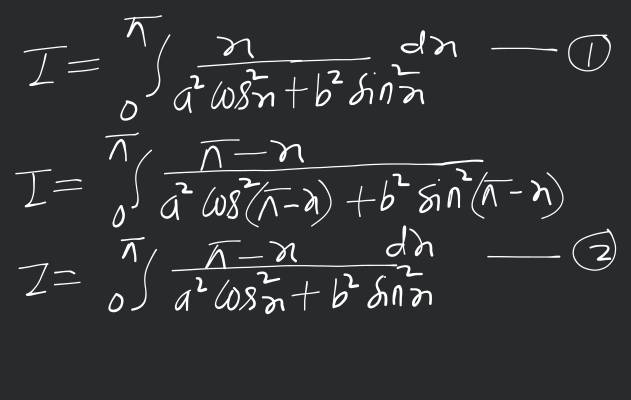 I = ∫₀^π x / (a² cos²x + b² sin²x) dx —— ①
I = ∫₀^π (π - x) / (a² cos²(π - x) + b² sin²(π - x))
I = ∫₀^π (π - x) / (a² cos²x + b² sin²x) dx —— ②